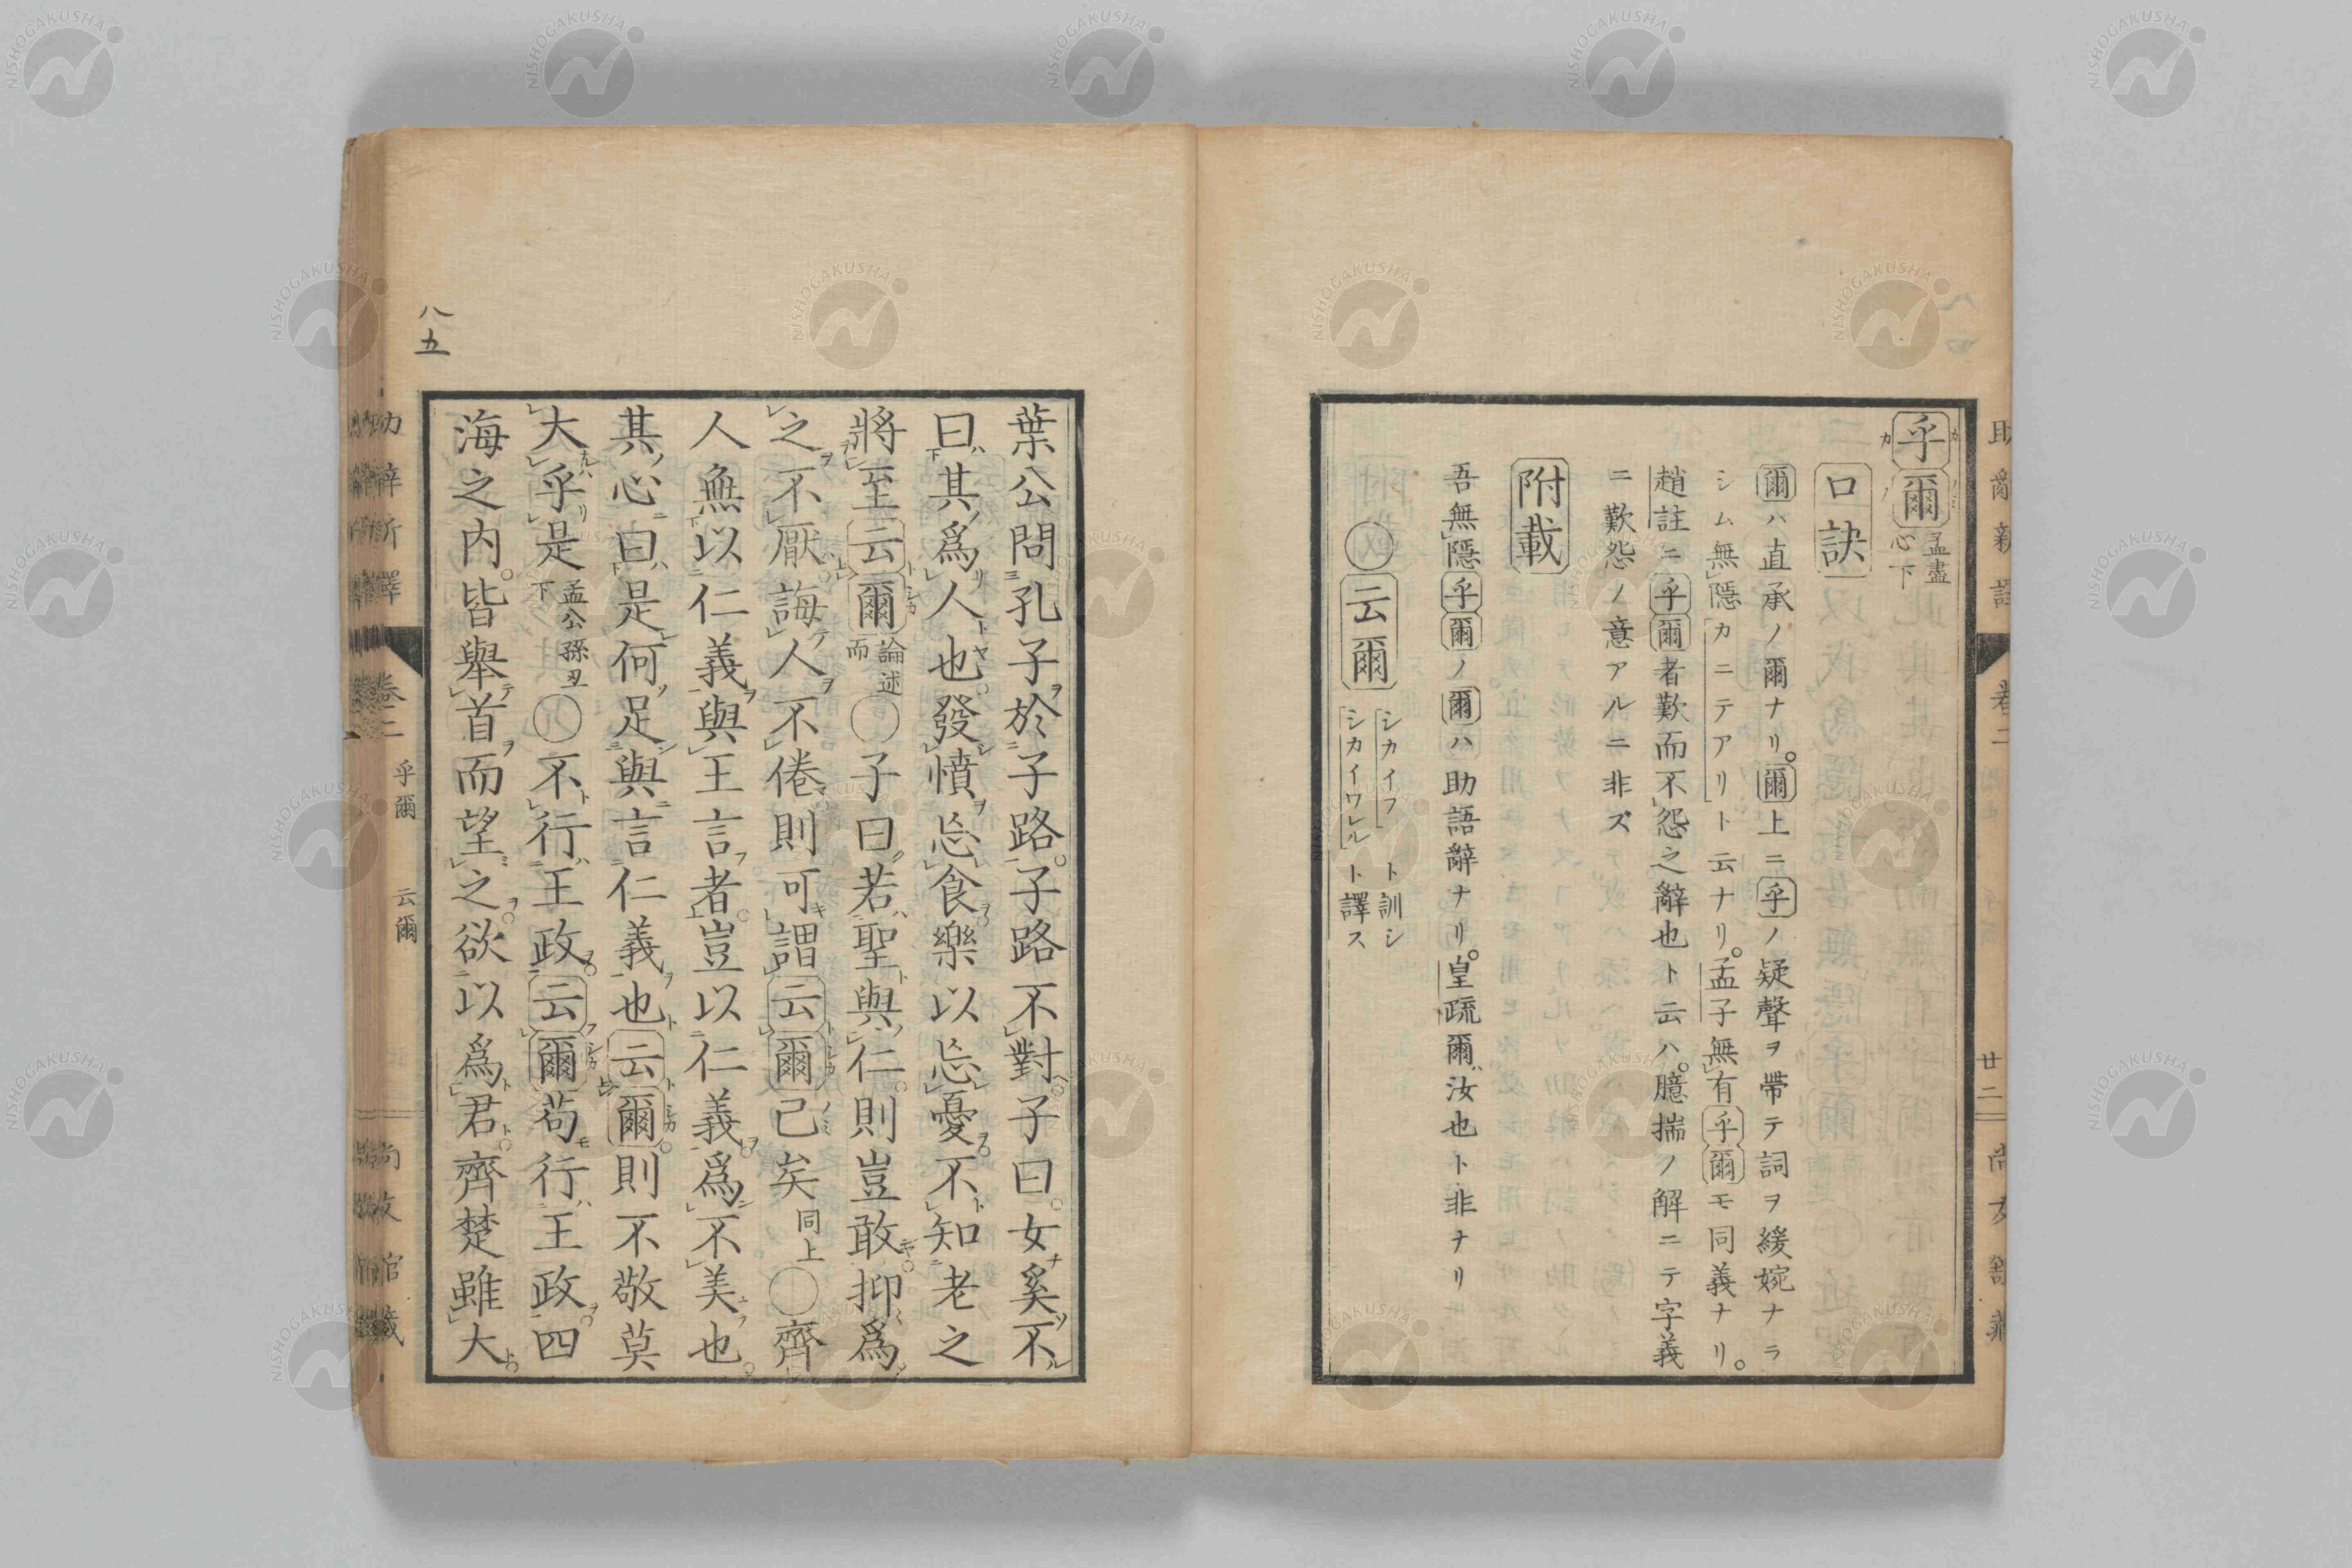 乎爾 孟盡心下
口訣
爾ハ直承ノ爾ナリ。爾上ニ乎ノ疑聲ヲ帶テ詞ヲ緩婉ナラ
シム無隱カニテアリト云ナリ。孟子無有乎爾モ同義ナリ。
趙註ニ乎爾者歎而不怨之辭也ト云ハ。臆揣ノ解ニテ字義
ニ歎怨ノ意アルニ非ズ
附載
吾無隱乎爾ノ爾ハ助語辭ナリ。皇疏爾汝也ト非ナリ
○云爾 シカイフト訓シ シカイワレルト譯ス
卷二
廿二
八五
葉公問孔子於子路。子路不對。子曰。女奚不
曰其爲人也。發憤忘食。樂以忘憂。不知老之
將至云爾 論述而 ○子曰若聖與仁。則豈敢。抑爲
之不厭。誨人不倦。則可謂云爾已矣 同上 ○齊
人無以仁義與王言者。豈以仁義爲不美也。
其心曰是何足與言仁義也云爾。則不敬莫
大乎是 孟公孫丑下 ○不行王政。云爾苟行王政。四
海之内。皆舉首而望之。欲以爲君。齊楚雖大。
卷二
乎爾
云爾
NISHOGAKUSHA